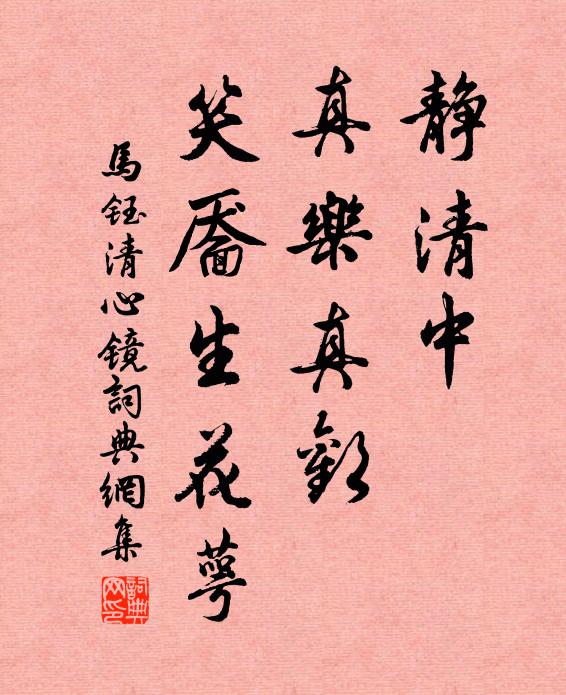 静清中
真樂真歡
笑靨生花萼
馬鈺清心镜詞典網集
詞典网印